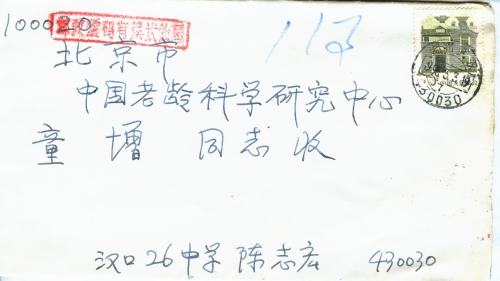 100020
北京市
中国老龄科学研究中心
童增 同志 收
汉口26中学 陈志宏 430030